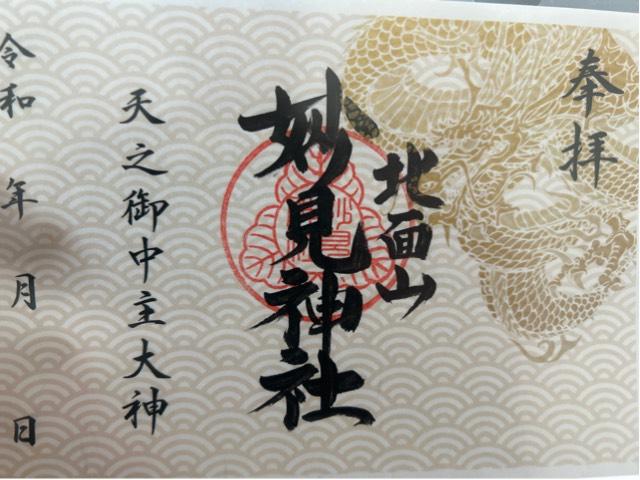 奉拝
北面山
妙見神社
天之御中主大神
令和 年 月 日